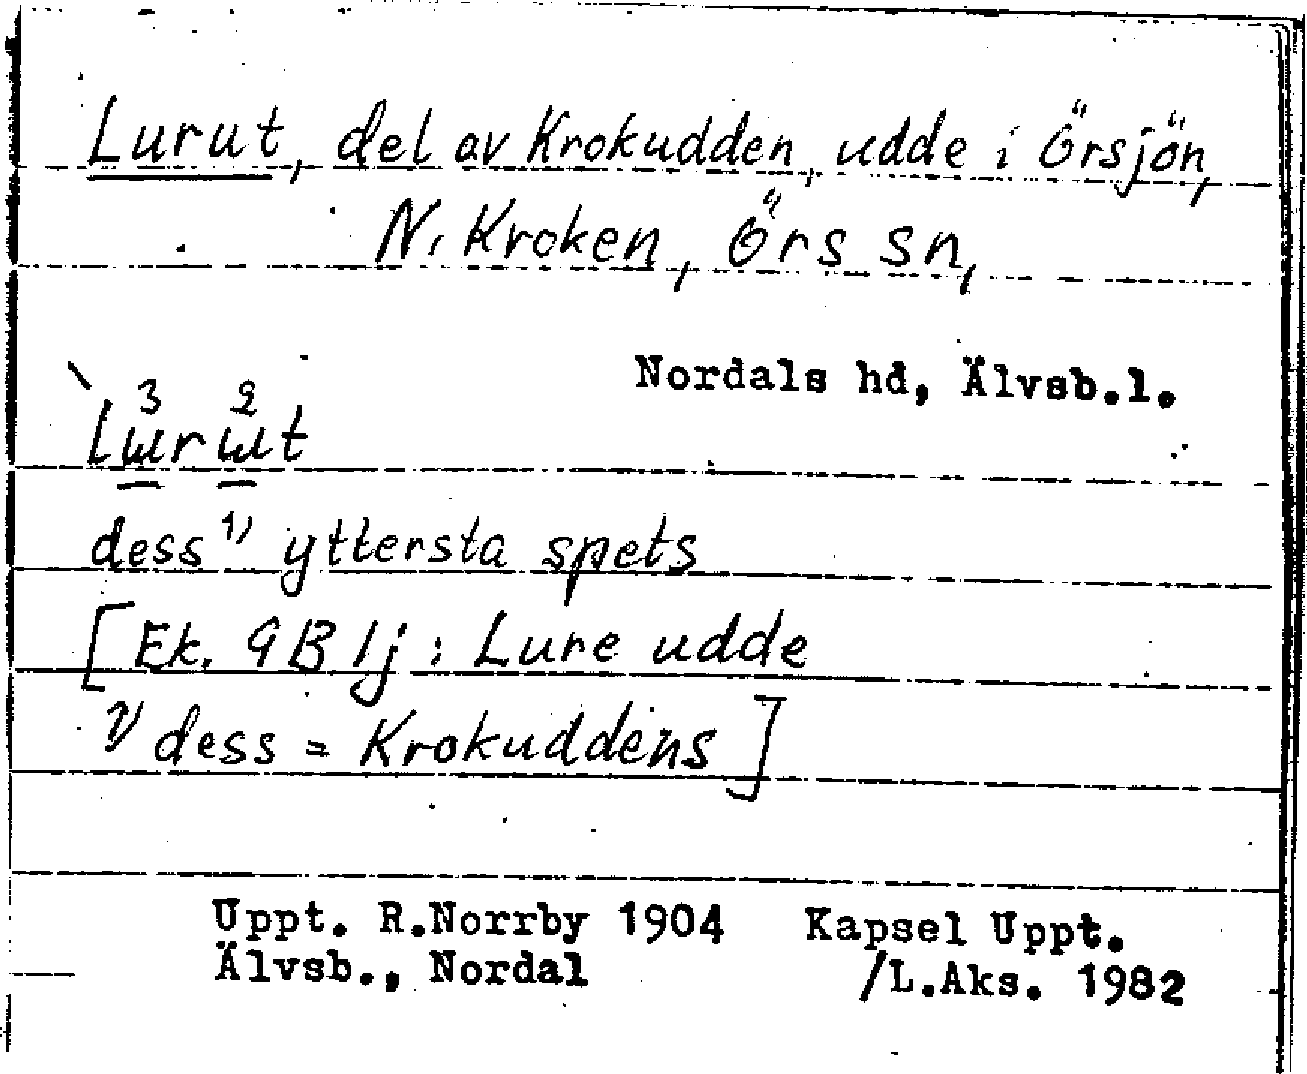 Lurut, del av Krokudden, udde i Örsjön,
N. Kroken, Örs sn,
Nordals hd, Älvsb.l.
3 2
`Lɯrɯt
dess 1) yttersta spets
[Ek. 9B1j: Lure udde
1) dess = Krokuddens]
Uppt. R.Norrby 1904 Kapsel Uppt.
Älvsb., Nordal /L.Aks. 1982